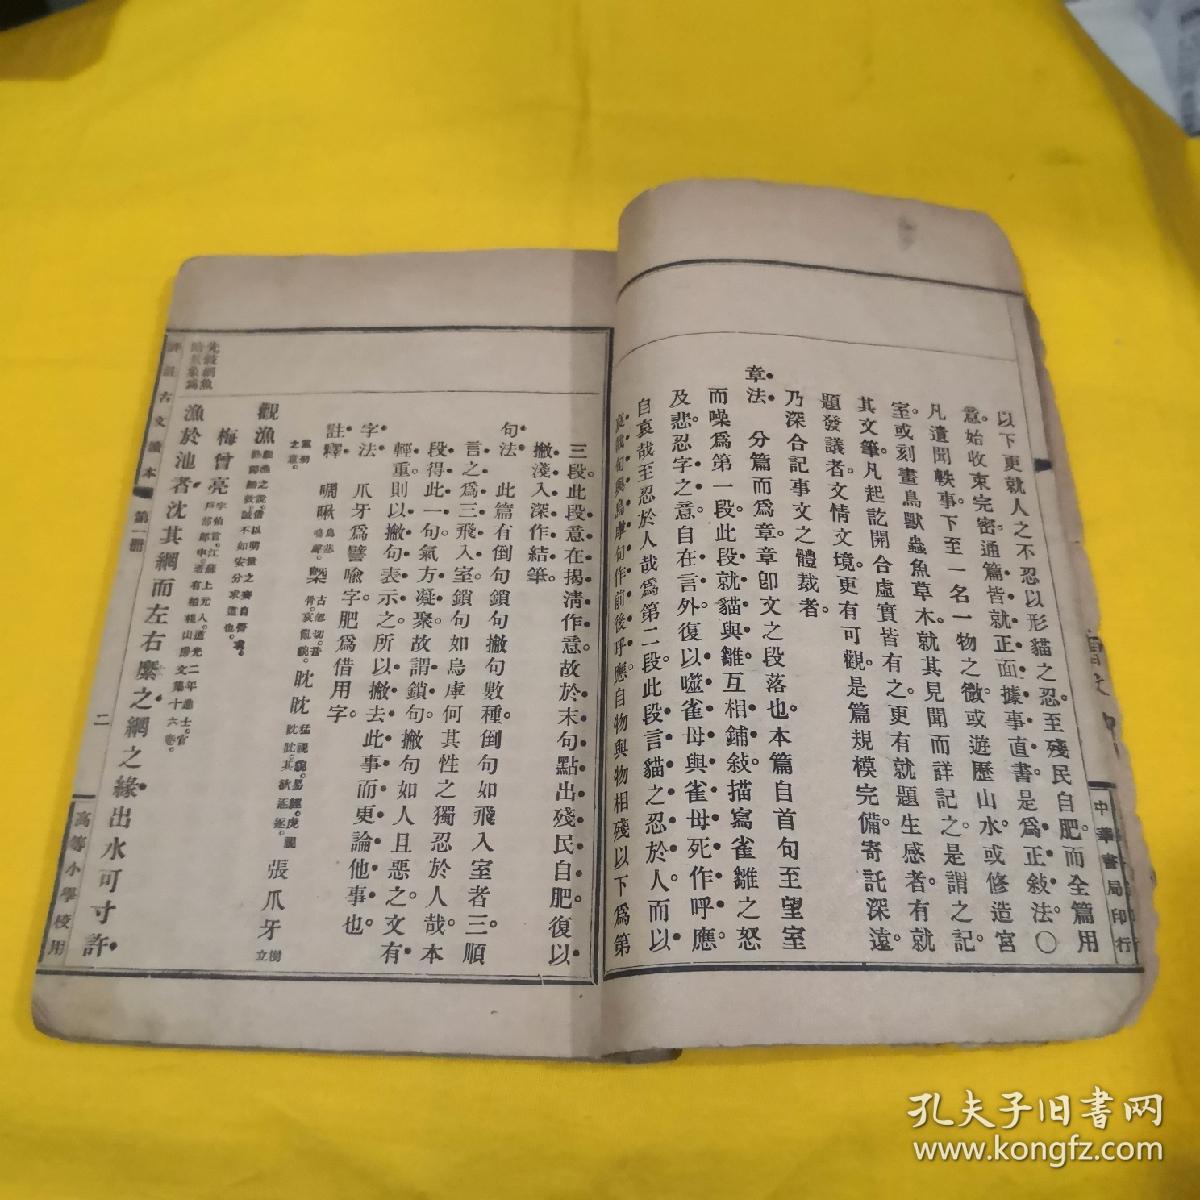 以下更就人之不忍以形貓之忍。至殘民自肥。而全篇用
意。始收束完密。通篇皆就正面據事直書。是爲正敍法。〇
凡遺聞軼事。下至一名一物之微。或遊歷山水。或修造宮
室。或刻畫鳥獸蟲魚草木。就其見聞而詳記之。是謂之記。
其文筆。凡起訖開合虛實皆有之。更有就題生感者。有就
題發議者。文情文境。更有可觀。是篇規模完備。寄託深遠。
乃深合記事文之體裁者。
章法　分篇而爲章。章卽文之段落也。本篇自首句至望室
而噪爲第一段。此段就貓與雛互相鋪敍。描寫雀雛之怒
及悲。忍字之意。自在言外。復以噬雀母與雀母死作呼應。
自哀哉至忍於人哉爲第二段。此段言貓之忍於人。而以
自物與物相殘以下爲第
三段。此段意在揭淸作意。故於末句點出殘民自肥。復以
撇淺入深作結筆。
句法　此篇有倒句鎖句撇句數種。倒句如飛入室者三。順
言之爲三飛入室。鎖句如烏虖何其性之獨忍於人哉。本
段得此一句。氣方凝聚。故謂鎖句。撇句如人且惡之。文有
輕重。則以撇句表示之。所以撇去此事而更論他事也。
字法　爪牙爲譬喻字。肥爲借用字。
註釋　啁啾　眈眈　張爪牙
觀漁
梅曾亮
漁於池者。沈其網而左右縻之。網之緣出水可寸許。
評註古文讀本　第一冊　二　高等小學校用
中華書局印行
孔夫子旧书网
www.kongfz.com